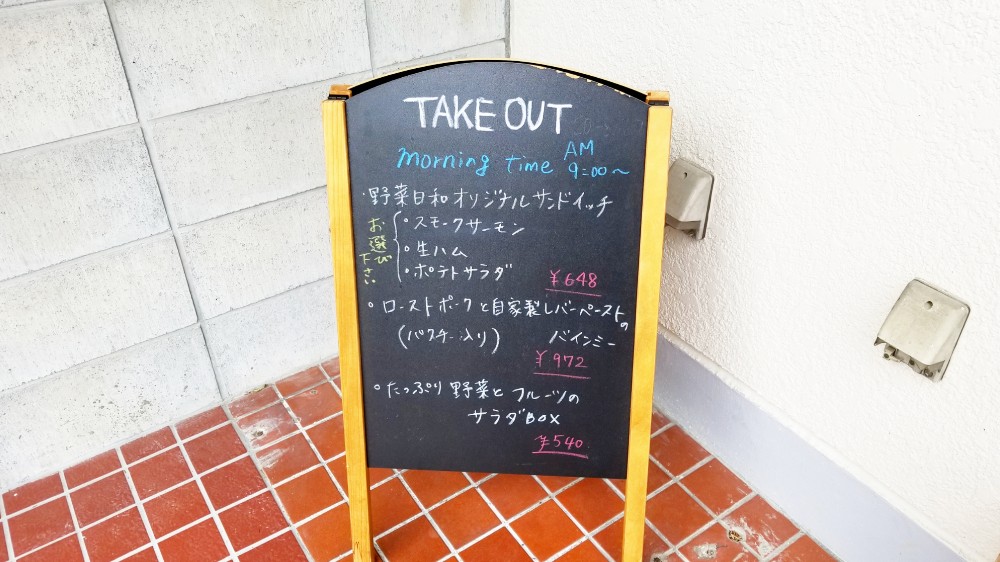 TAKE OUT
morning time AM 9:00～
・野菜日和オリジナルサンドイッチ
お選び下さい
。スモークサーモン
。生ハム
。ポテトサラダ
¥648
。ローストポークと自家製レバーペーストの
(パクチー入り) バインミー
¥972
。たっぷり野菜とフルーツの
サラダBOX
¥540